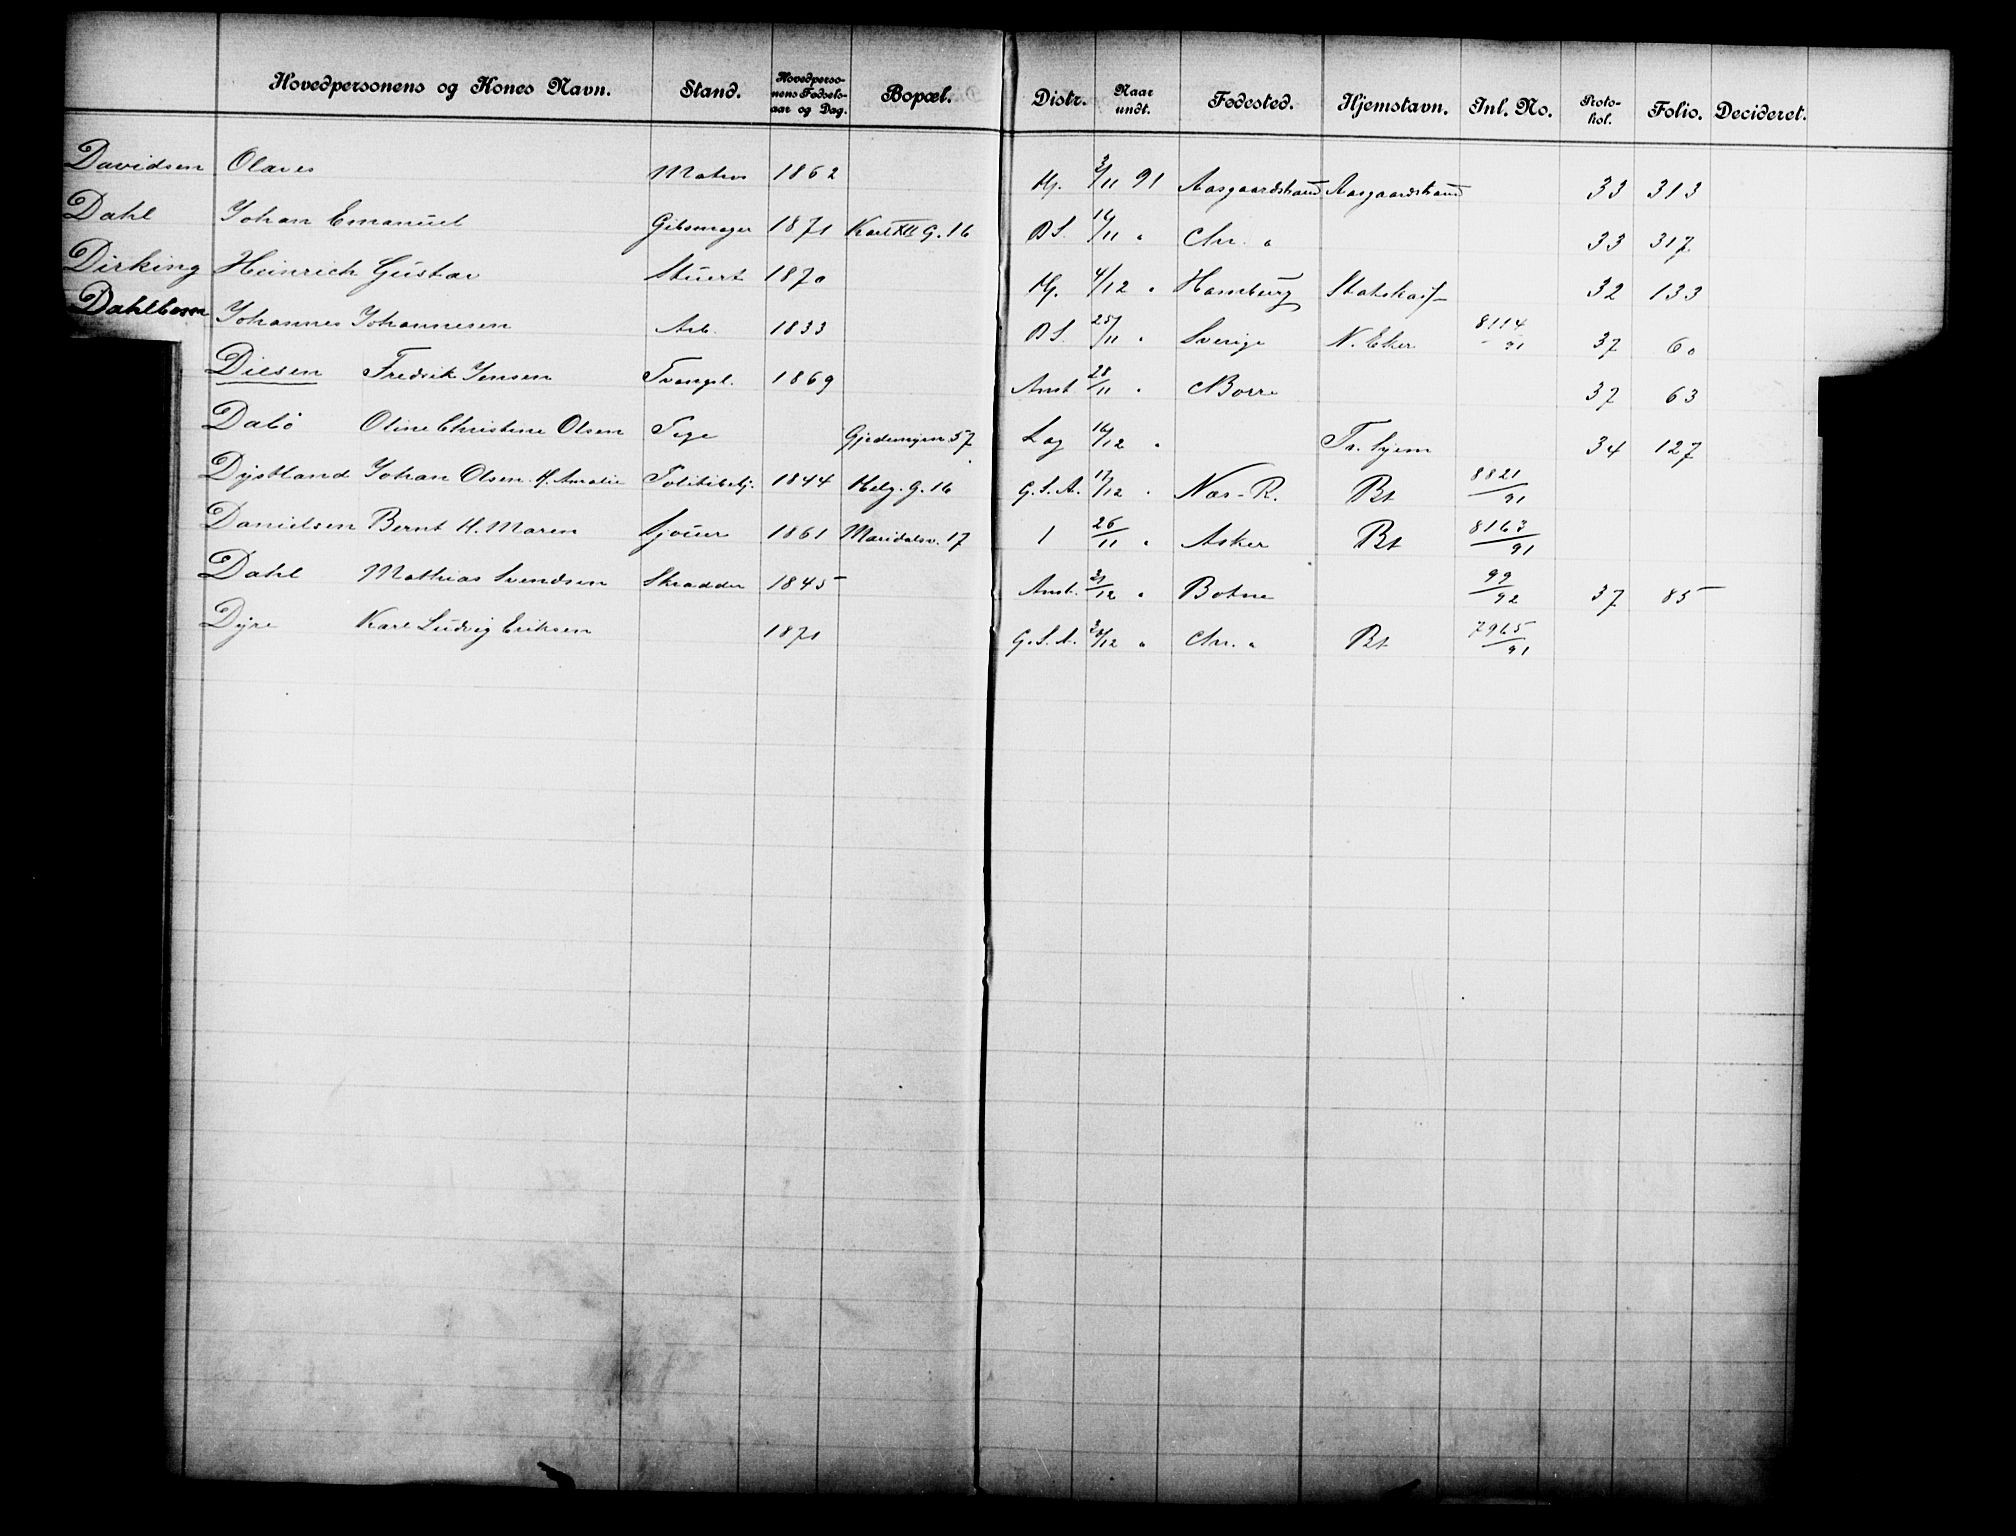 Hovedpersonens og Kones Navn. Stand. Hovedperso-nens Fødsels-aar og Dag. Bopæl. Distr. Naar undt. Fødested. Hjemstavn. Inl. No. Proto-kol. Folio. Decideret.
Davidsen Olaves Matros 1862 3/11 91 Aasgaardstrand Aasgaardstrand 33 313
Dahl Johan Emanuel Gibsmager 1871 Karl XII G. 16 B S. 16/11 " Chr. a 33 317
Dirking Heinrich Gustav Stuert 1870 4/12 " Hamburg 32 133
Dahlbom Johannes Johannesen Arb. 1833 B S. 25/11 " Sverige N. Eker 8114/91 37 60
Diesen Fredrik Jensen Tvangsl. 1869 Amt 28/11 " Borre 37 63
Dabo Oline Christine Olsen Pige 57 Lag 16/12 " Tr. hjem 34 127
Dystland Johan Olsen H. Amalie Politibetj. 1844 Helg. G. 16 G. S. A. 17/12 " Næs - R. Bt 8821/91
Danielsen Bernt H. Maren 1861 Maridalsv. 17 1 26/11 " Asker Bt 8163/91
Dahl Mathias Svendsen Skrædder 1845 Amt. 21/12 " Botne 99/92 37 85
Dyre Karl Ludvig Eriksen 1871 G. S. A. /12 " Chr. a Bt 7965/91